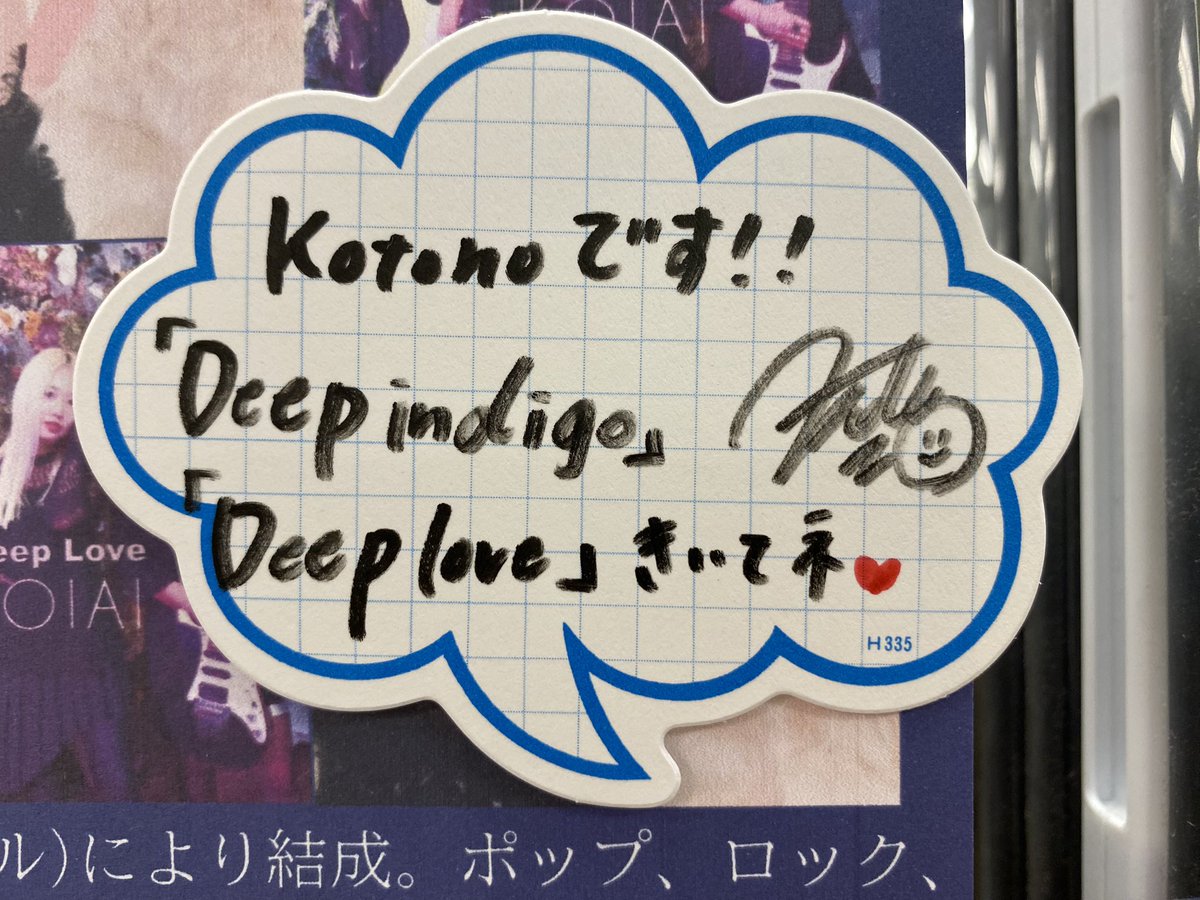 KOIAI
Kotonoです!!
「Deep indigo」
「Deep love」きいてネ
H335
eep Love
OIAI
ル)により結成。ポップ、ロック、